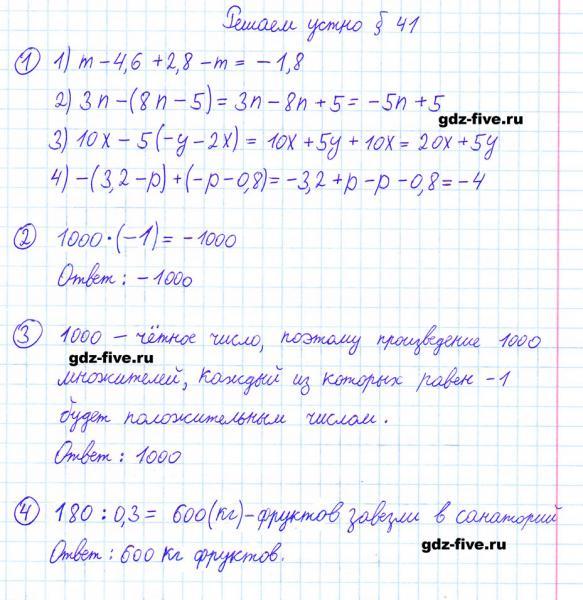 Решаем устно § 41
① 1) m - 4,6 + 2,8 - m = - 1,8
2) 3n - (8n - 5) = 3n - 8n + 5 = -5n + 5
gdz-five.ru
3) 10x - 5(-y - 2x) = 10x + 5y + 10x = 20x + 5y
4) -(3,2 - p) + (-p - 0,8) = -3,2 + p - p - 0,8 = -4
② 1000 · (-1) = -1000
Ответ: -1000
③ 1000 - чётное число, поэтому произведение 1000
gdz-five.ru
множителей, каждый из которых равен -1
будет положительным числом.
Ответ: 1000
④ 180 : 0,3 = 600 (кг) - фруктов завезли в санаторий
Ответ: 600 кг фруктов.
gdz-five.ru